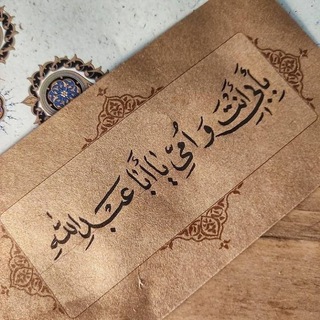 بِأَبِي أَنْتَ وَ أُمِّي يَا أَبَا عَبْدِ اللهِ